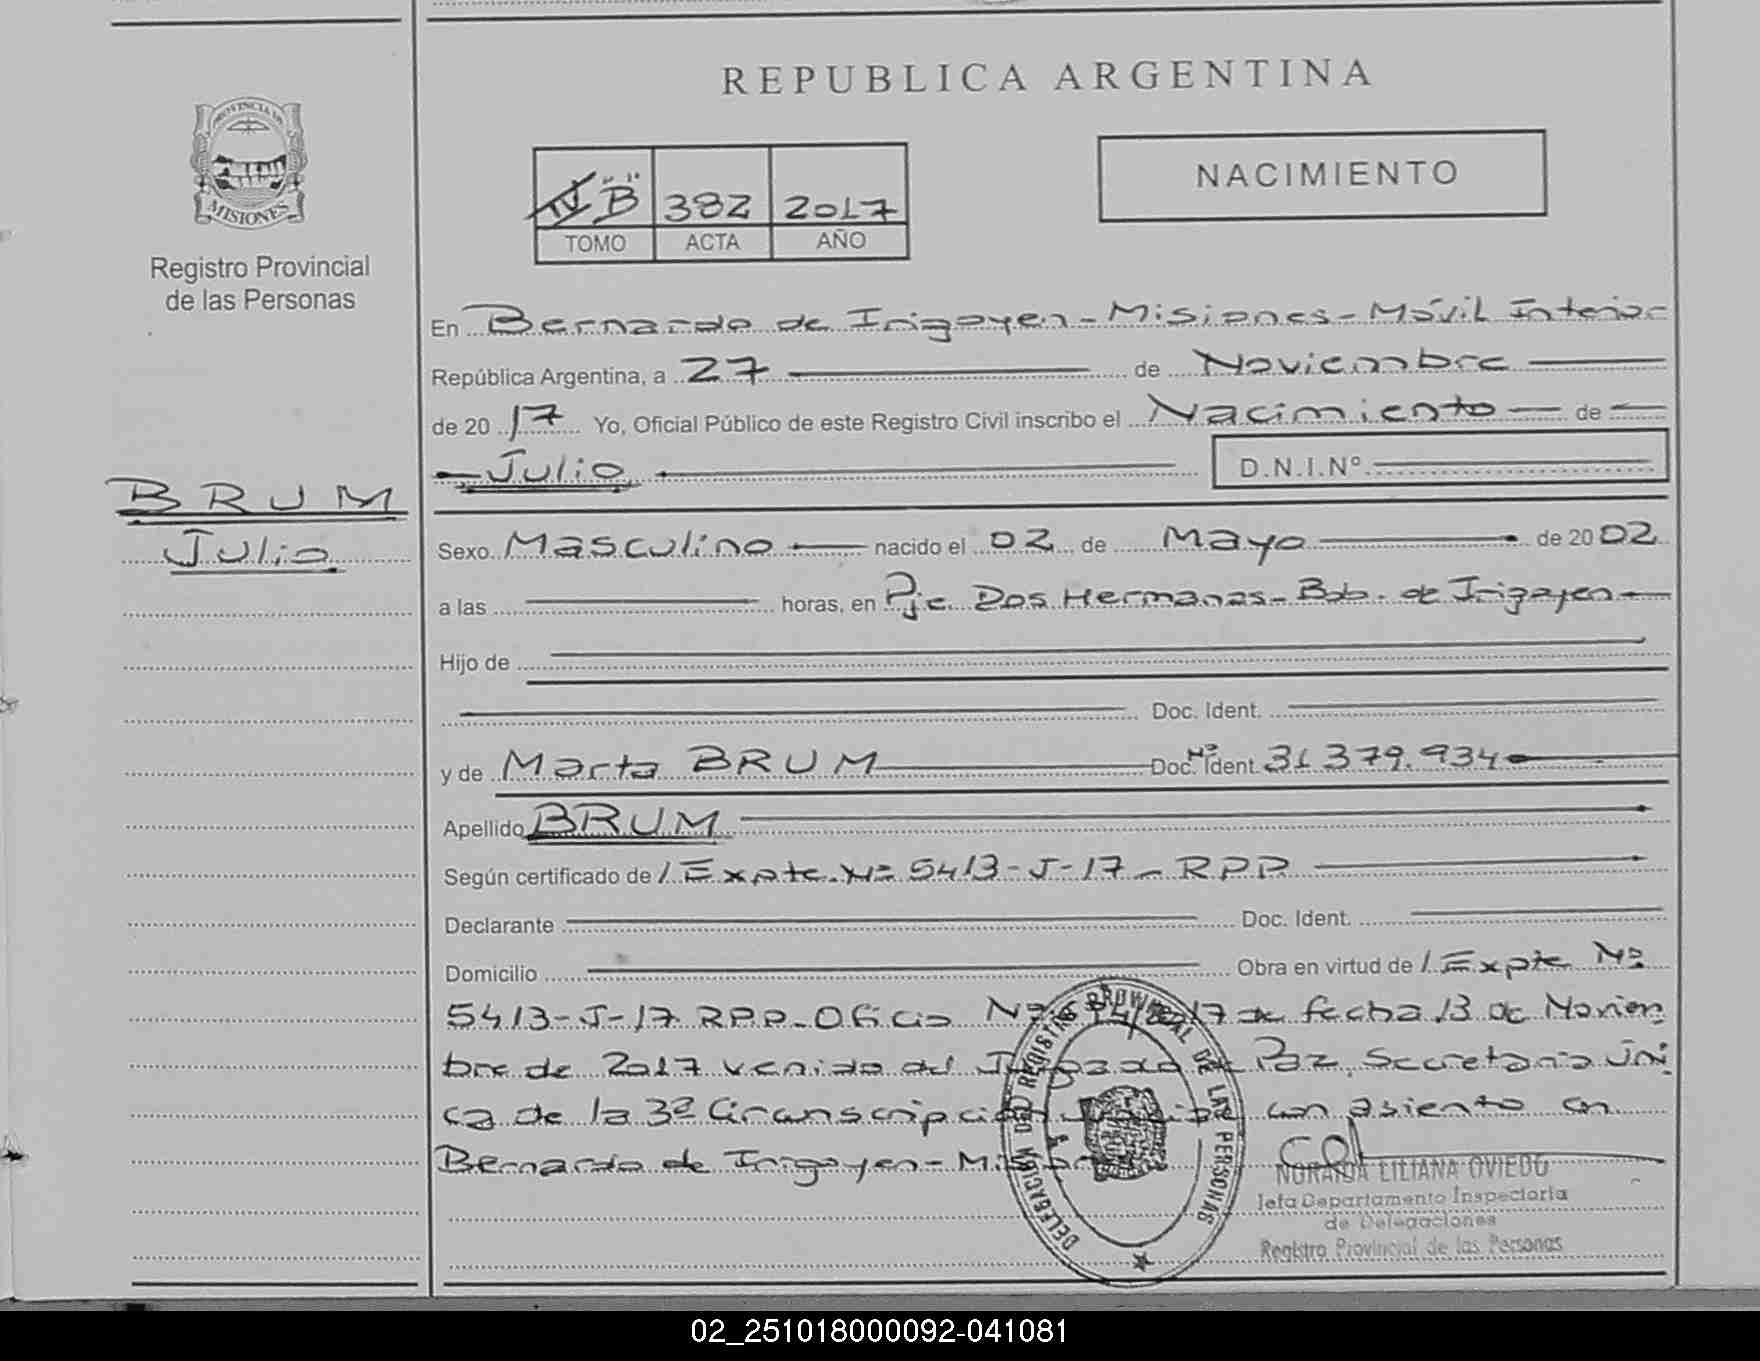 REPUBLICA ARGENTINA
PROVINCIA DE
MISIONES
Registro Provincial
de las Personas
B 382 2017
TOMO ACTA AÑO
NACIMIENTO
En Bernardo de Irigoyen - Misiones - Móvil Interior
República Argentina, a 27 de Noviembre
de 20 17 Yo, Oficial Público de este Registro Civil inscribo el Nacimiento de
Julio D.N.I.Nº
BRUM
Julio
Sexo Masculino nacido el 02 de Mayo de 20 02
a las horas, en Pje Dos Hermanas - Bdo. de Irigoyen
Hijo de
Doc. Ident.
y de Marta BRUM Doc. Nº Ident. 31.379.934
Apellido BRUM
Según certificado de / Expte. Nº 5413-J-17 - RPP
Declarante Doc. Ident.
Domicilio Obra en virtud de / Expte Nº
5413-J-17 RPP - Oficio Nº 17 de fecha 13 de Noviem
bre de 2017 venido del Juzgado de Paz, Secretaria Úni
ca de la 3ª Circunscripción Judicial con asiento en
Bernardo de Irigoyen - Misiones
DELEGACION DEL REGISTRO PROVINCIAL DE LAS PERSONAS
NORAIDA LILIANA OVIEDO
Jefa Departamento Inspectoria
de Delegaciones
Registro Provincial de las Personas
02_251018000092-041081